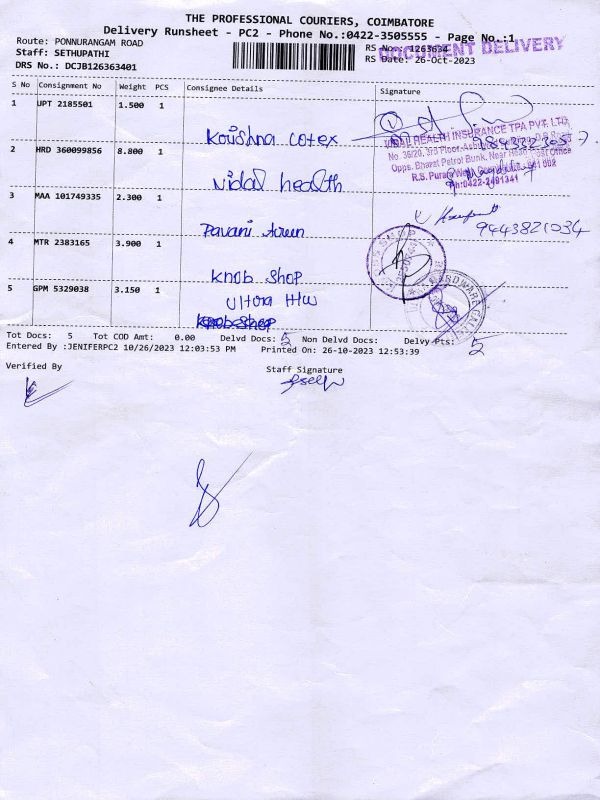 THE PROFESSIONAL COURIERS, COIMBATORE
Delivery Runsheet - PC2 - Phone No.:0422-3505555 - Page No.:1
Route: PONNURANGAM ROAD
RS No: 1263634
DOCUMENT DELIVERY
Staff: SETHUPATHI
RS Date: 26-Oct-2023
DRS No.: DCJB126363401
S No Consignment No Weight PCS Consignee Details Signature
1 UPT 2185501 1.500 1
Krishna cotex
VIDAL HEALTH INSURANCE TPA PVT. LTD.
No. 36/20, 3rd Floor
Opps. Bharat Petrol Bunk, Near Head Post Office
R.S. Puram West
Ph:0422-2491341
2 HRD 360099856 8.800 1
Vidal health
3 MAA 101749335 2.300 1
9443821034
Pavani
4 MTR 2383165 3.900 1
Knob Shop
5 GPM 5329038 3.150 1
Ultra H/w
Tot Docs: 5 Tot COD Amt: 0.00 Delvd Docs: 5 Non Delvd Docs: Delvy Pts: 5
Entered By :JENIFERPC2 10/26/2023 12:03:53 PM Printed On: 26-10-2023 12:53:39
Verified By
Staff Signature